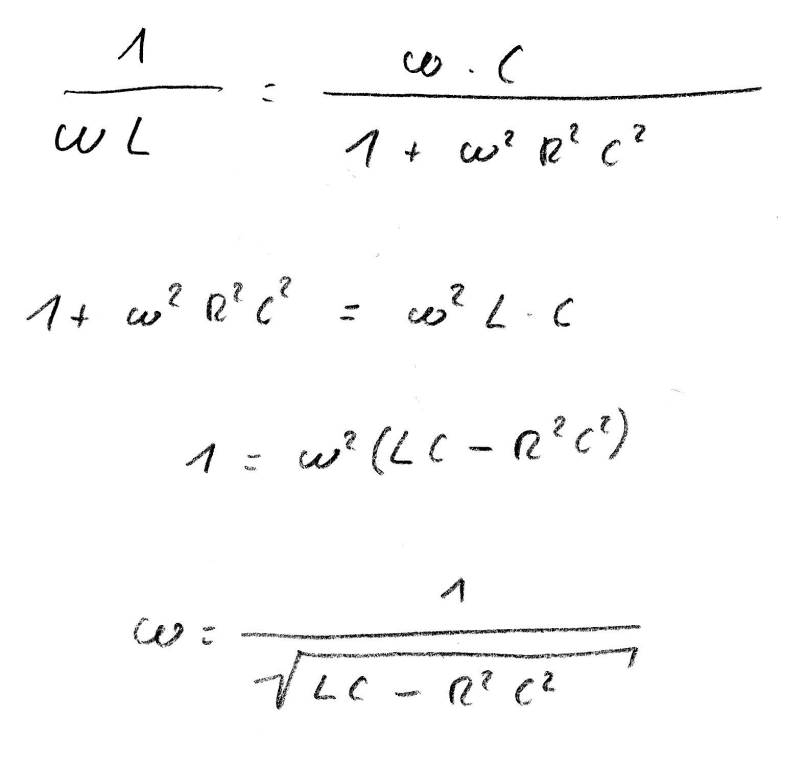 1/(ωL) = (ω · C)/(1 + ω² R² C²)
1 + ω² R² C² = ω² L · C
1 = ω² (LC − R² C²)
ω = 1/√(LC − R² C²)